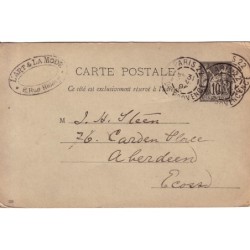 L'ART & LA MODE
CARTE POSTALE
Ce côté est exclusivement réservé à l'adresse
PARIS
M J. H. Steen
26 Carden Place
Aberdeen
Ecosse